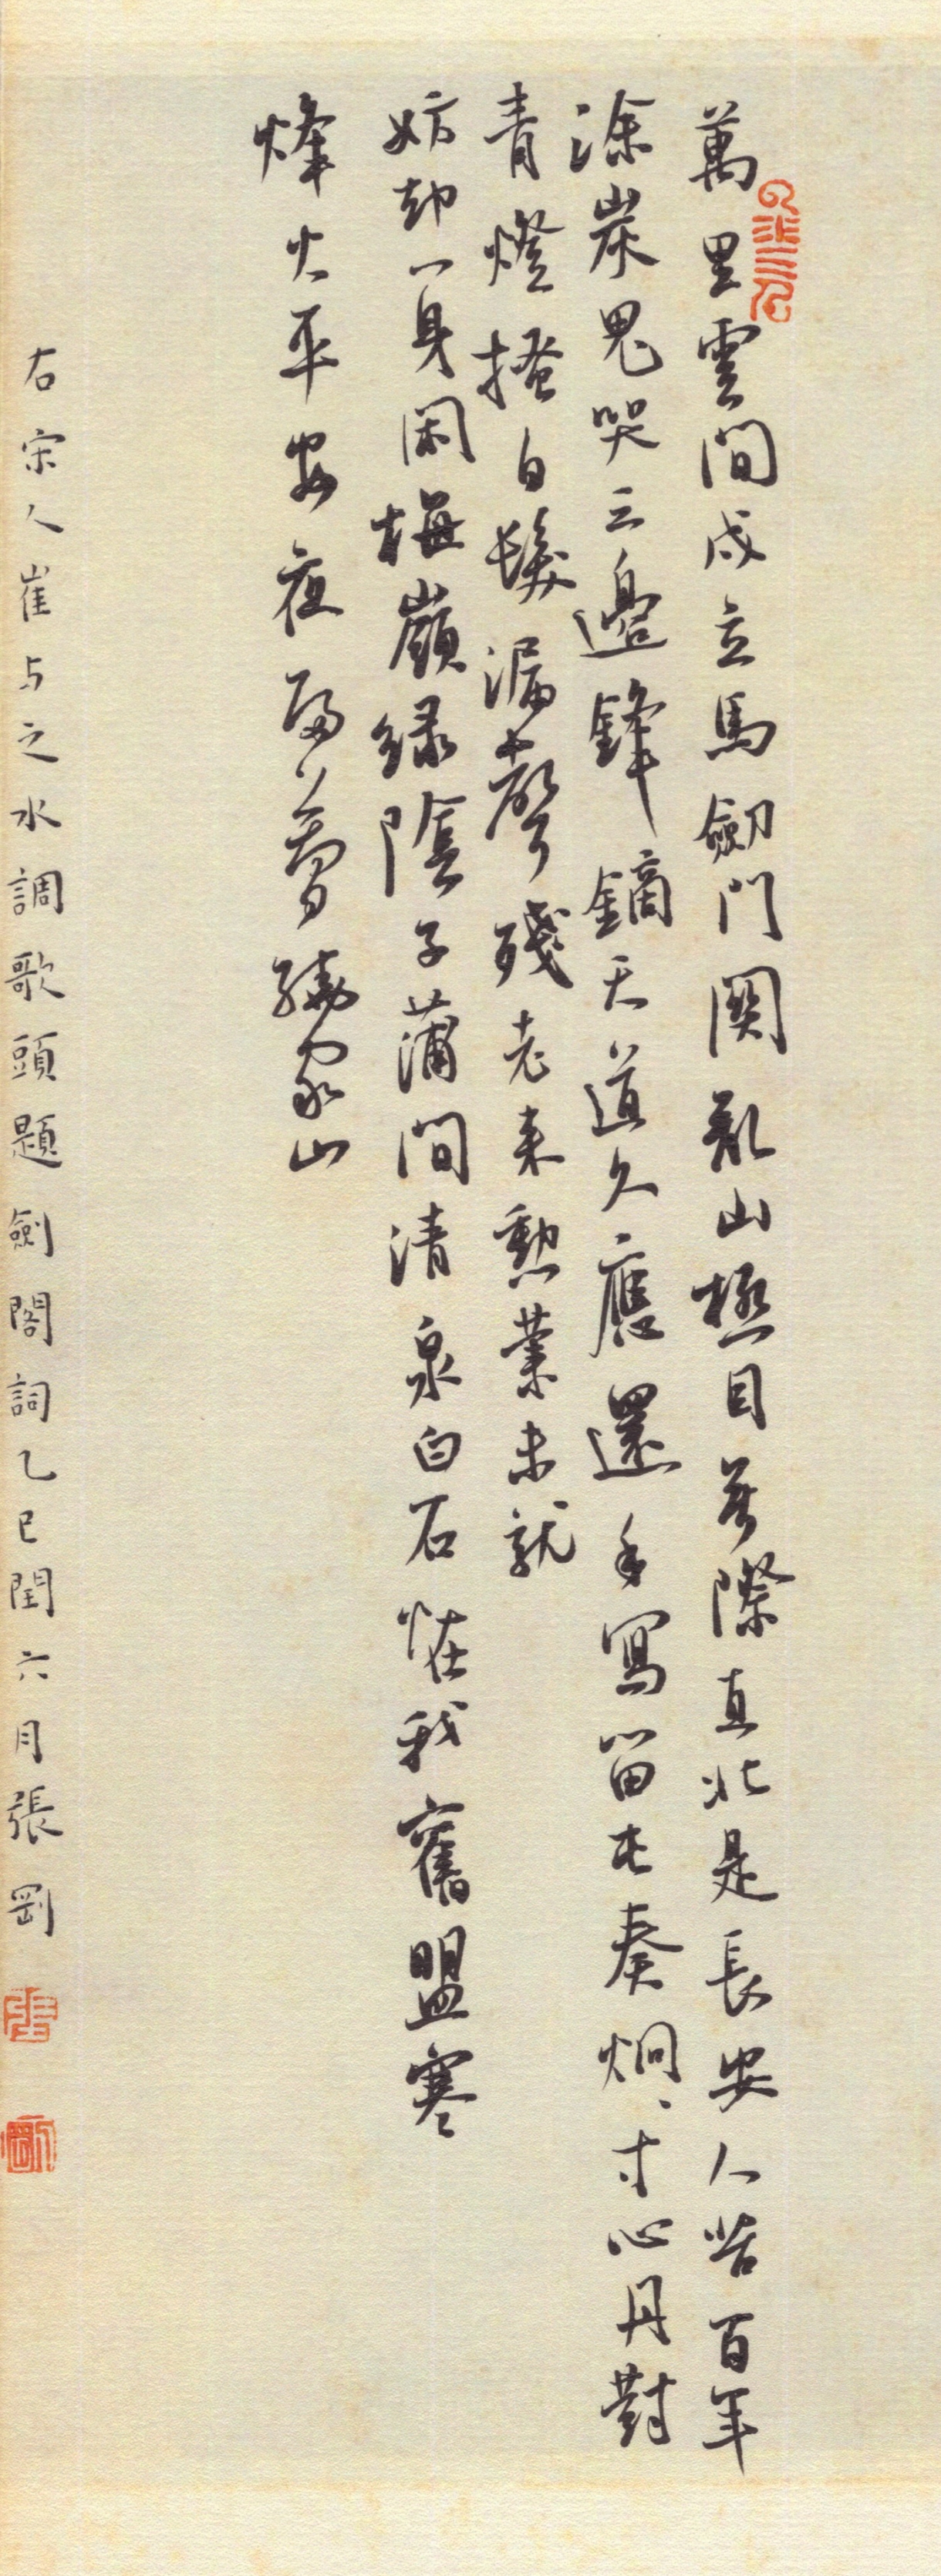 萬里雲間戍立馬劒門關亂山極目無際直北是長安人苦百年
塗炭鬼哭三邊鋒鏑天道久應還手寫留屯奏炯、寸心丹對
青燈搔白髮漏聲殘老来勲業未就
妨却一身閑梅嶺緑陰子蒲澗清泉白石恠我舊盟寒
烽火平安夜歸夢繞家山
右宋人崔与之水調歌頭題劍閣詞乙巳閏六月張剛